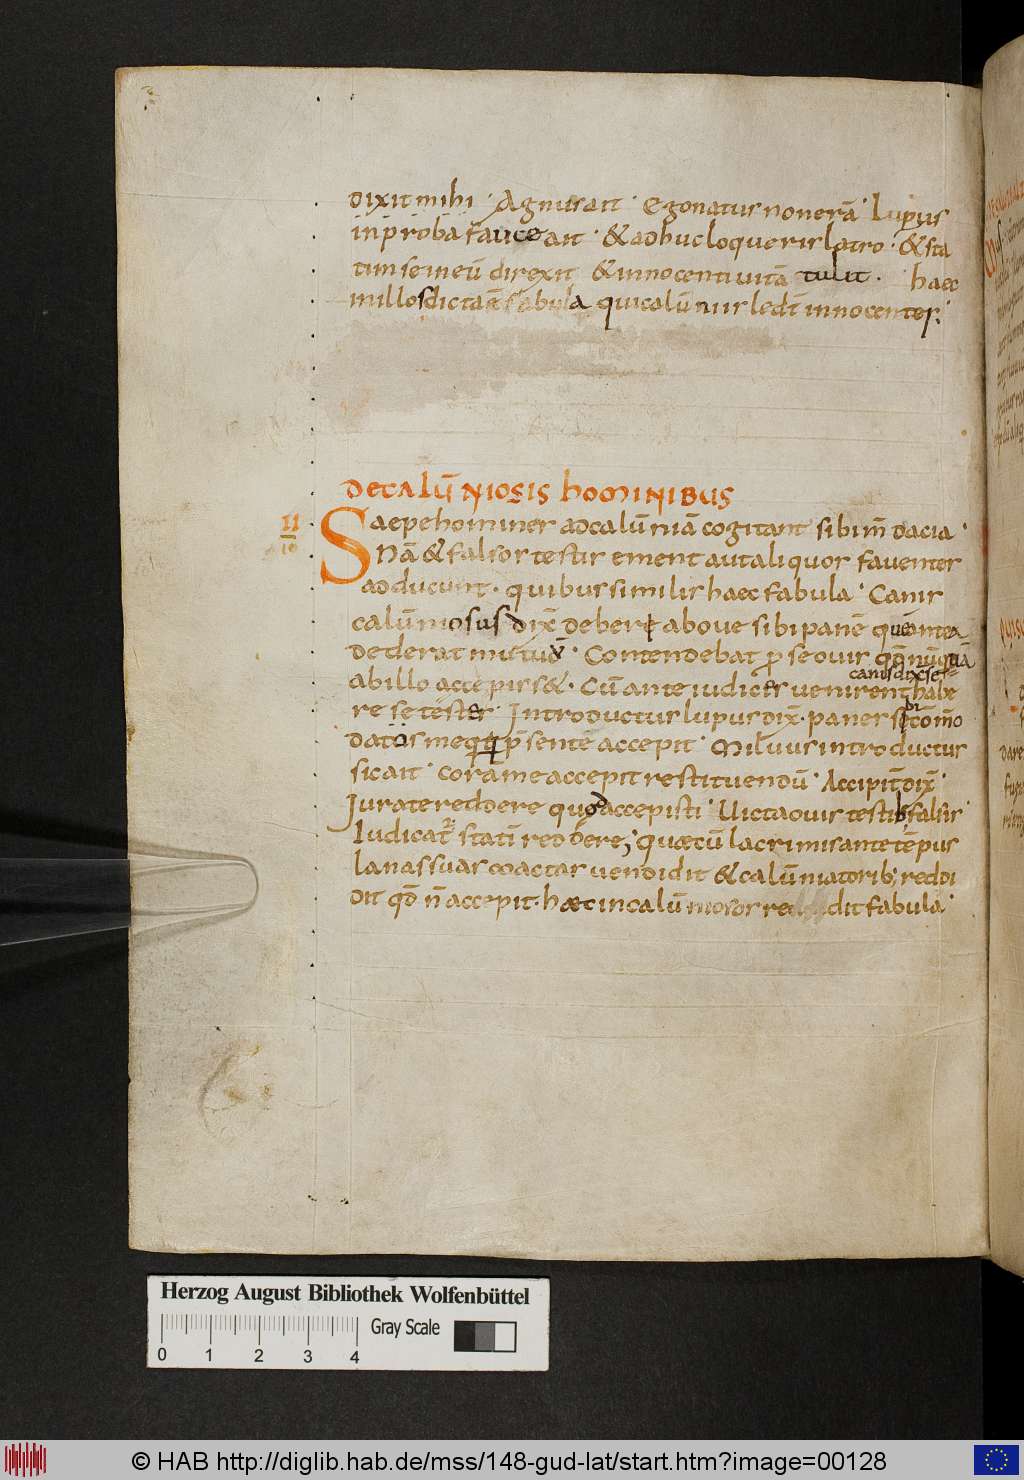 dixit mihi · Agnus ait · Ego natus non erā · Lupus
inproba fauce ait · & adhuc loqueris latro · & sta
tim se in eū direxit & innocenti vitā tulit · haec
in illos dicta ē fabula qui calūnus ledt innocentes ·
De calūniosis hominibus
II
Saepe homines ad calūniā cogitant sibi m̄dacia ·
Nā & falsos testis ement aut aliquos faventes
adducunt · quibus similis haec fabula · Canis
calūniosus dix̄ debere ab ove sibi panē quē antea
dederat mutuū · Contendebat p̄ se ovis qđ nūquā
canis dix se
ab illo accepisse& · Cū ante iudices venirent habe
re se testes · Introductus lupus dix̄ · panes s; cōmo
datos meq; p̄sente accepit · Miluus introductus
sic ait · coram e accepit restituendū · Accipit̄ dix̄ ·
Iurate reddere quod accepisti · Victa ovis testib; falsis ·
Iudicat̄ statī reddere; quae cū lacrimis ante tēpus
lanas suas coactas vendidit & calūniatorib; reddi
dit qđ n̄ accepit · haec in calūniosos reddit fabula ·
Herzog August Bibliothek Wolfenbüttel
Gray Scale
0 1 2 3 4
© HAB http://diglib.hab.de/mss/148-gud-lat/start.htm?image=00128